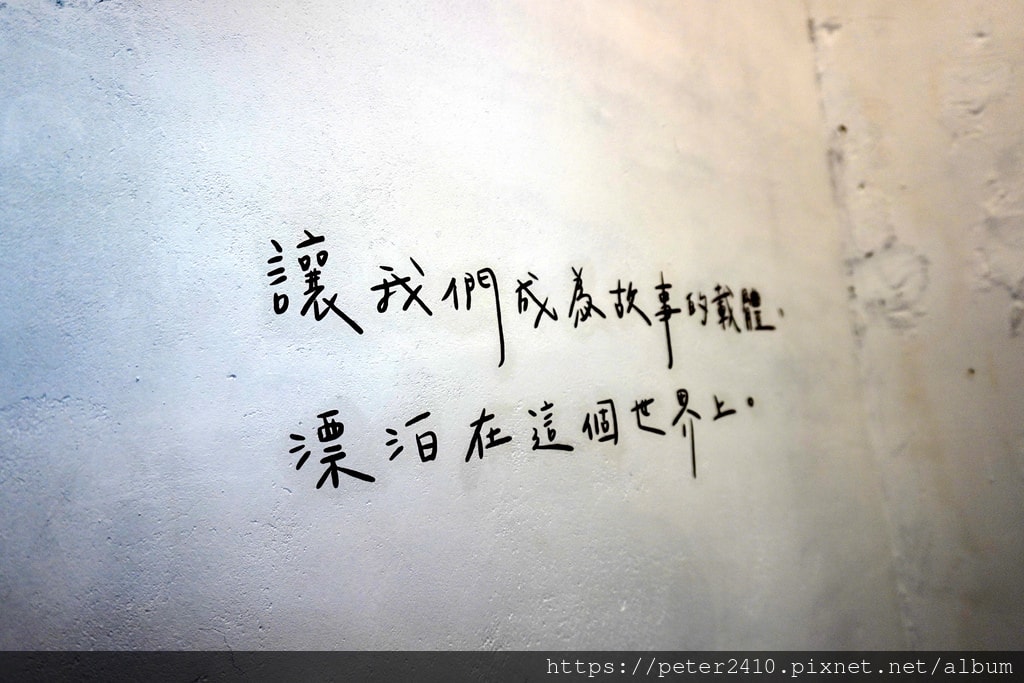 讓我們成為故事的載體,
漂泊在這個世界上。
https://peter2410.pixnet.net/album